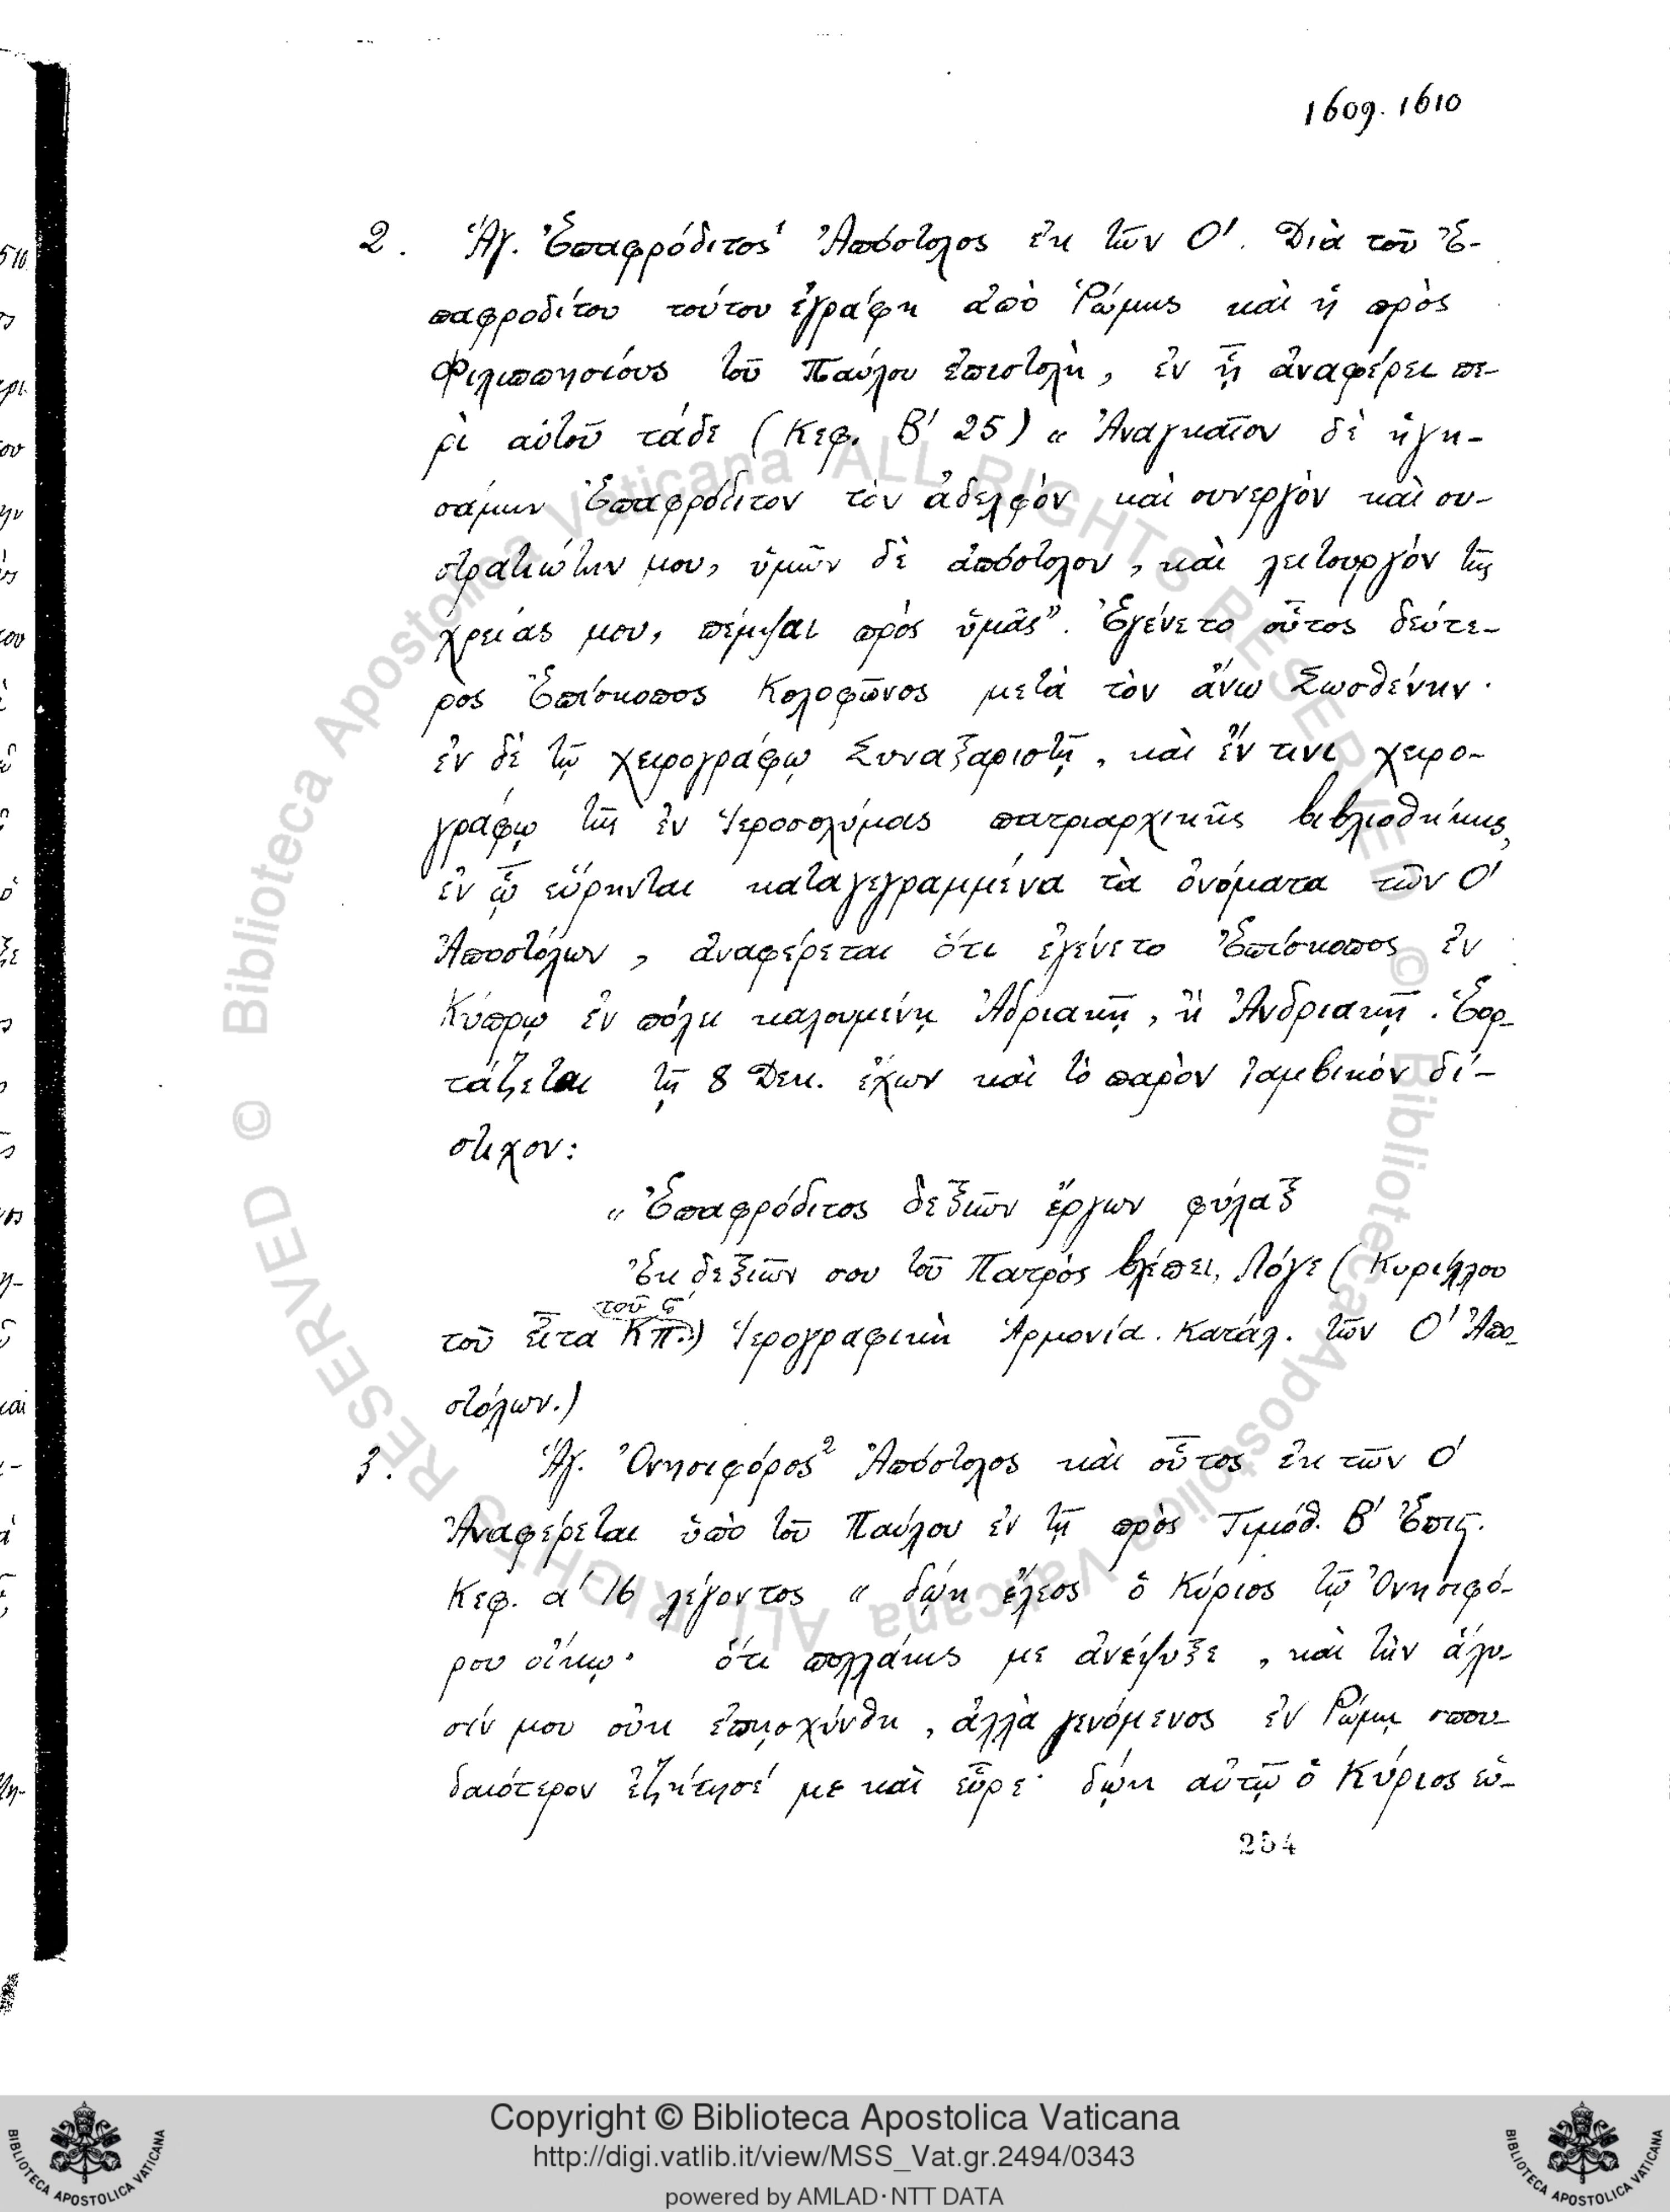 1609. 1610
2. Ἁγ. Ἐπαφρόδιτος¹ Ἀπόστολος ἐκ τῶν Ο'. Διὰ τοῦ Ἐ-
παφροδίτου τούτου ἐγράφη ἀπὸ Ῥώμης καὶ ἡ πρὸς
Φιλιππησίους τοῦ Παύλου ἐπιστολὴ, ἐν ᾗ ἀναφέρει πε-
ρὶ αὐτοῦ τάδε (Κεφ. Β' 25) « Ἀναγκαῖον δὲ ἡγη-
σάμην Ἐπαφρόδιτον τὸν ἀδελφὸν καὶ συνεργὸν καὶ συ-
στρατιώτην μου, ὑμῶν δὲ ἀπόστολον, καὶ λειτουργὸν τῆς
χρείας μου, πέμψαι πρὸς ὑμᾶς". Ἐγένετο οὗτος δεύτε-
ρος Ἐπίσκοπος Κολοφῶνος μετὰ τὸν ἄνω Σωσθένην·
ἐν δὲ τῷ χειρογράφῳ Συναξαριστῇ, καὶ ἔν τινι χειρο-
γράφῳ τῆς ἐν Ἱεροσολύμοις πατριαρχικῆς βιβλιοθήκης,
ἐν ᾧ εὕρηνται καταγεγραμμένα τὰ ὀνόματα τῶν Ο'
Ἀποστόλων, ἀναφέρεται ὅτι ἐγένετο Ἐπίσκοπος ἐν
Κύπρῳ ἐν πόλει καλουμένῃ Ἀδριακῇ, ἢ Ἀνδριακῇ. Ἑορ-
τάζεται τῇ 8 Δεκ. ἔχων καὶ τὸ παρὸν ἰαμβικὸν δί-
στιχον:
« Ἐπαφρόδιτος δεξιῶν ἔργων φύλαξ
Ἐκ δεξιῶν σου τοῦ Πατρὸς βλέπει, Λόγε (Κυρίλλου
τοῦ ς'
τοῦ εἶτα ΚΠ.) Ἱερογραφικὴ Ἁρμονία. Κατάλ. τῶν Ο' Ἀπο-
στόλων.)
3. Ἁγ. Ὀνησιφόρος² Ἀπόστολος καὶ οὗτος ἐκ τῶν Ο'
Ἀναφέρεται ὑπὸ τοῦ Παύλου ἐν τῇ πρὸς Τιμόθ. Β' Ἐπις.
Κεφ. α' 16 λέγοντος « δῴη ἔλεος ὁ Κύριος τῷ Ὀνησιφό-
ρου οἴκῳ· ὅτι πολλάκις με ἀνέψυξε, καὶ τὴν ἅλυ-
σίν μου οὐκ ἐπῃσχύνθη, ἀλλὰ γενόμενος ἐν Ῥώμῃ σπου-
δαιότερον ἐζήτησέ με καὶ εὗρε· δῴη αὐτῷ ὁ Κύριος εὑ-
254
© Biblioteca Apostolica Vaticana ALL RIGHTS RESERVED
© Biblioteca Apostolica Vaticana ALL RIGHTS RESERVED
Copyright © Biblioteca Apostolica Vaticana
http://digi.vatlib.it/view/MSS_Vat.gr.2494/0343
powered by AMLAD·NTT DATA
BIBLIOTECA APOSTOLICA VATICANA
BIBLIOTECA APOSTOLICA VATICANA